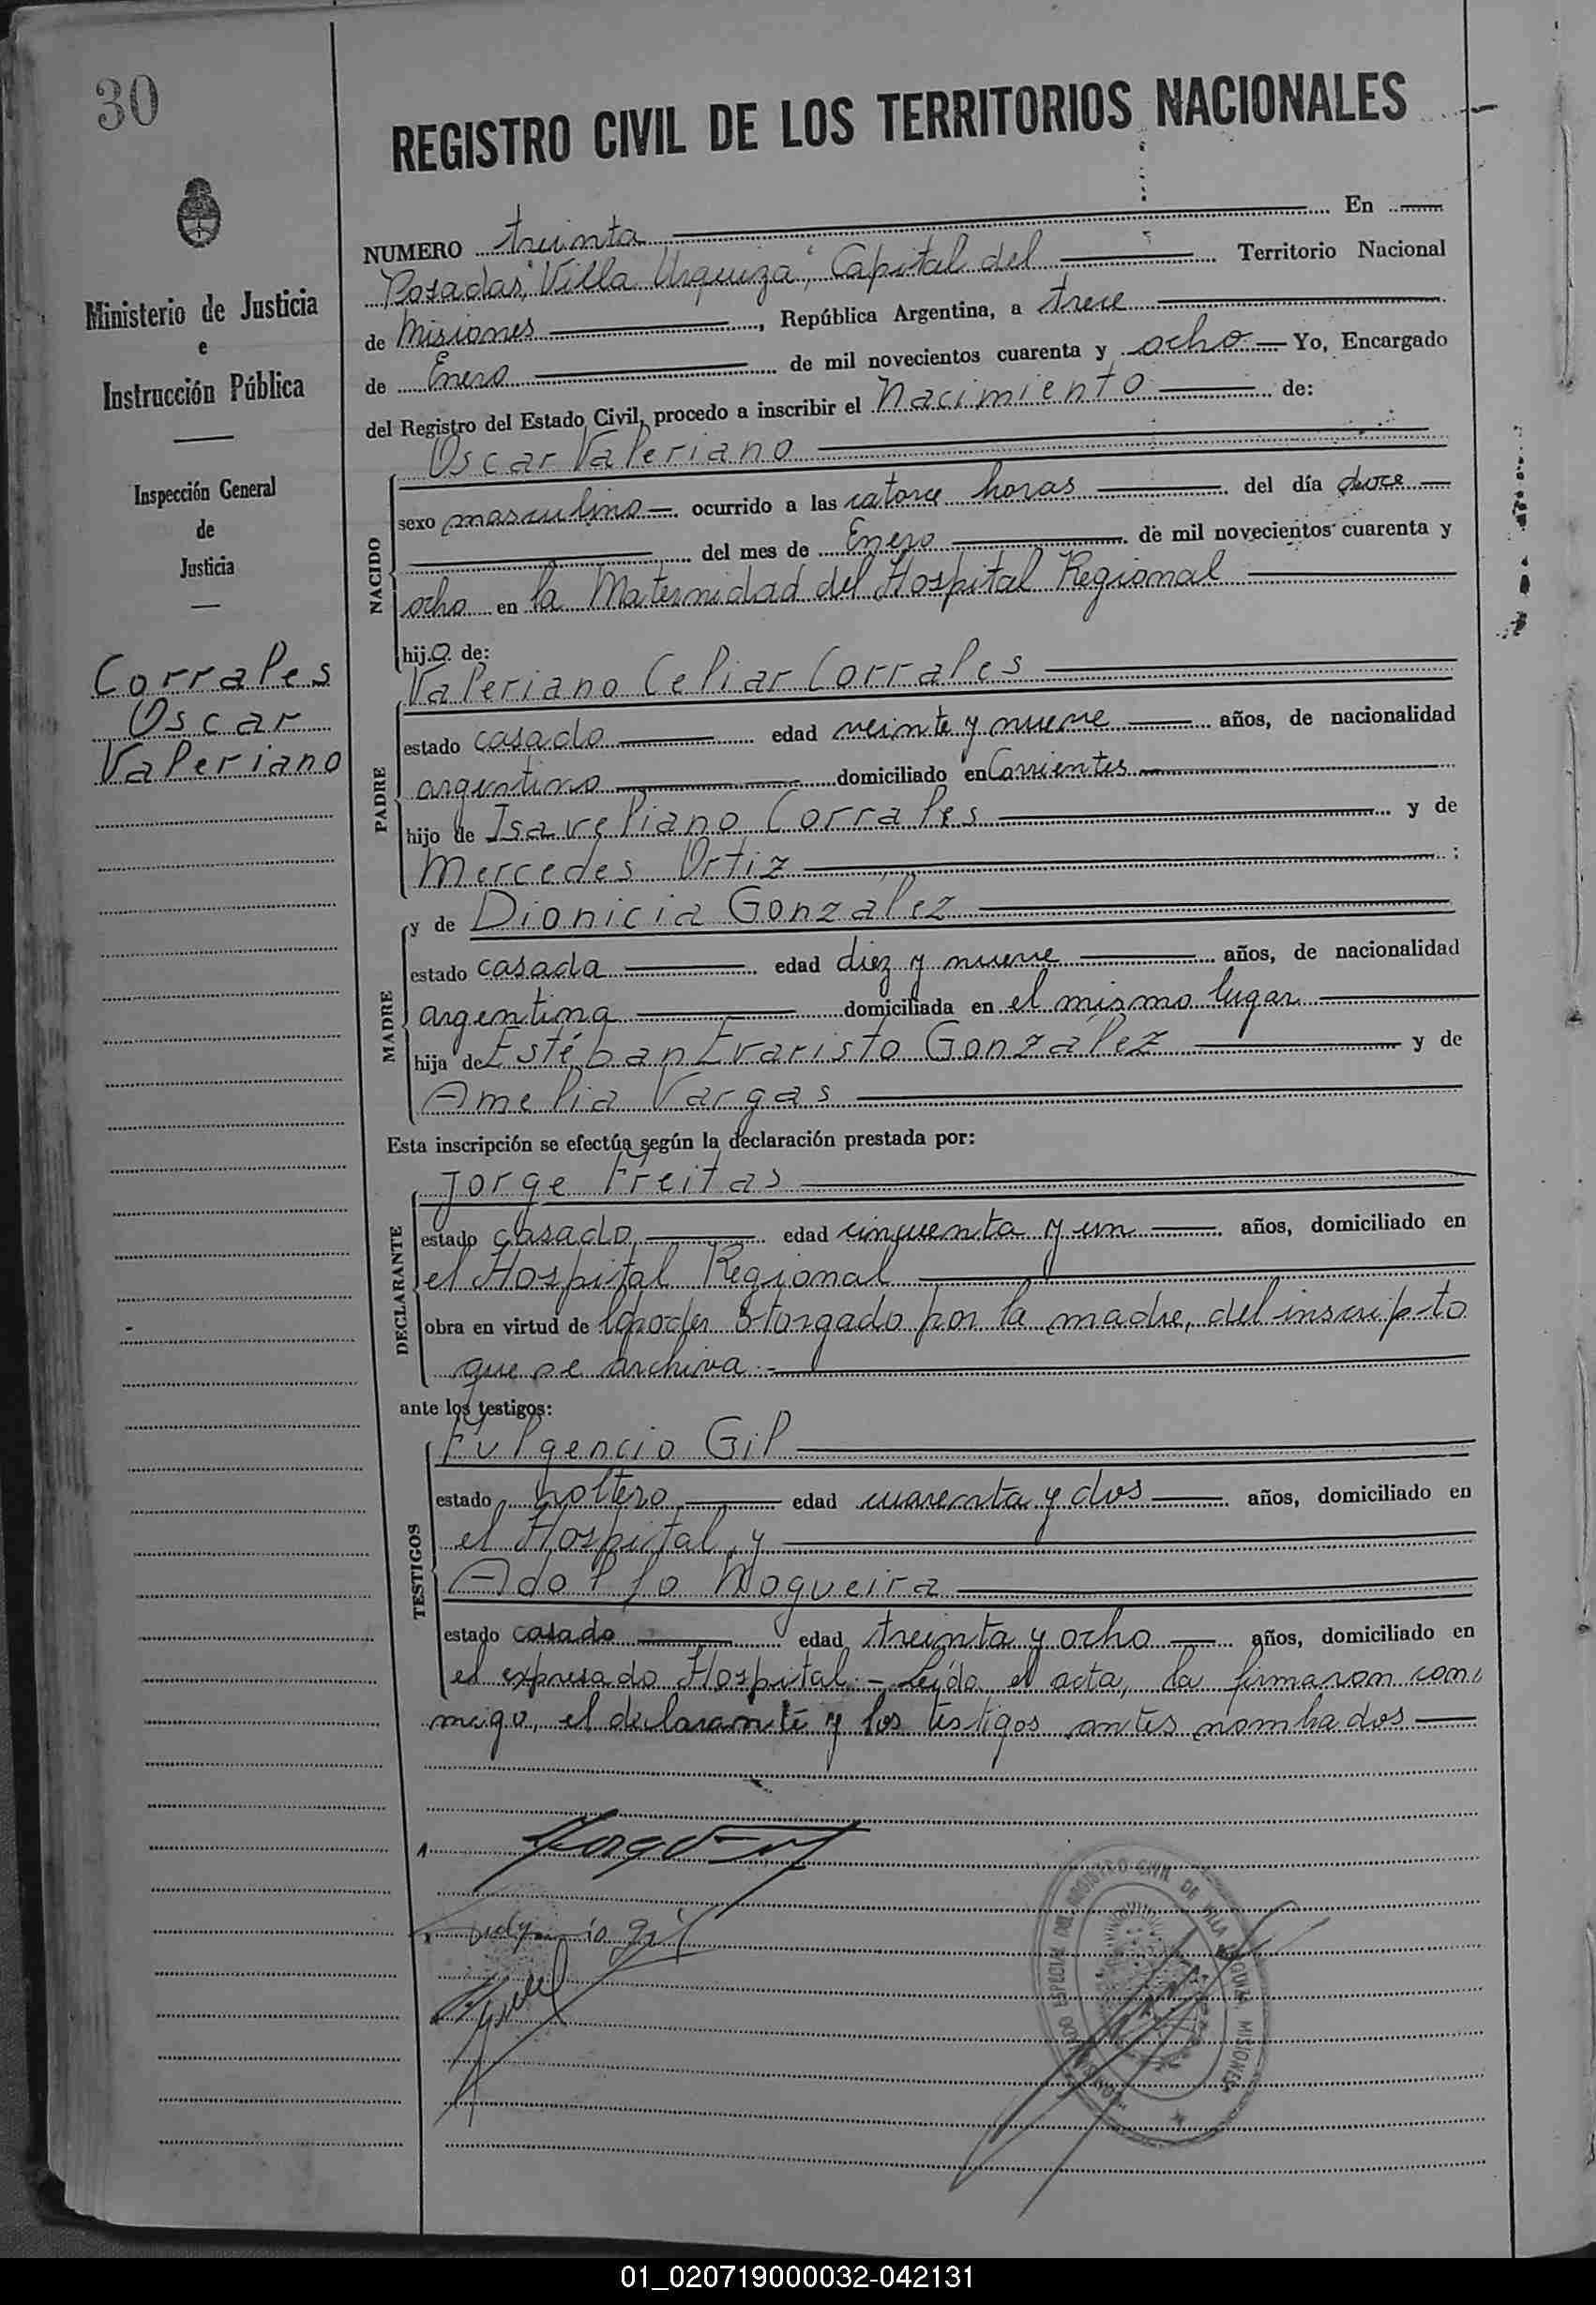 30
REGISTRO CIVIL DE LOS TERRITORIOS NACIONALES
NUMERO treinta En
Posadas, "Villa Urquiza", Capital del Territorio Nacional
de Misiones, República Argentina, a trece
de Enero de mil novecientos cuarenta y ocho Yo, Encargado
del Registro del Estado Civil, procedo a inscribir el Nacimiento de:
Ministerio de Justicia
e
Instrucción Pública
Inspección General
de
Justicia
Corrales
Oscar
Valeriano
NACIDO
Oscar Valeriano
sexo masculino ocurrido a las catorce horas del día doce
del mes de Enero de mil novecientos cuarenta y
ocho en la Maternidad del Hospital Regional
hijo de:
PADRE
Valeriano Celiar Corrales
estado casado edad veinte y nueve años, de nacionalidad
argentino domiciliado en Corrientes
hijo de Isaveliano Corrales y de
Mercedes Ortiz :
MADRE
y de Dionicia González
estado casada edad diez y nueve años, de nacionalidad
argentina domiciliada en el mismo lugar
hija de Estéban Evaristo González y de
Amelia Vargas
Esta inscripción se efectúa según la declaración prestada por:
DECLARANTE
Jorge Freitas
estado casado edad cincuenta y un años, domiciliado en
el Hospital Regional
obra en virtud de poder otorgado por la madre, del inscripto
que se archiva.-
ante los testigos:
TESTIGOS
Fulgencio Gil
estado soltero edad cuarenta y dos años, domiciliado en
el Hospital y
Adolfo Nogueira
estado casado edad treinta y ocho años, domiciliado en
el expresado Hospital.- Leída el acta, la firmaron con-
migo, el declarante y los testigos antes nombrados
REGISTRO CIVIL DE VILLA URQUIZA MISIONES
01_020719000032-042131